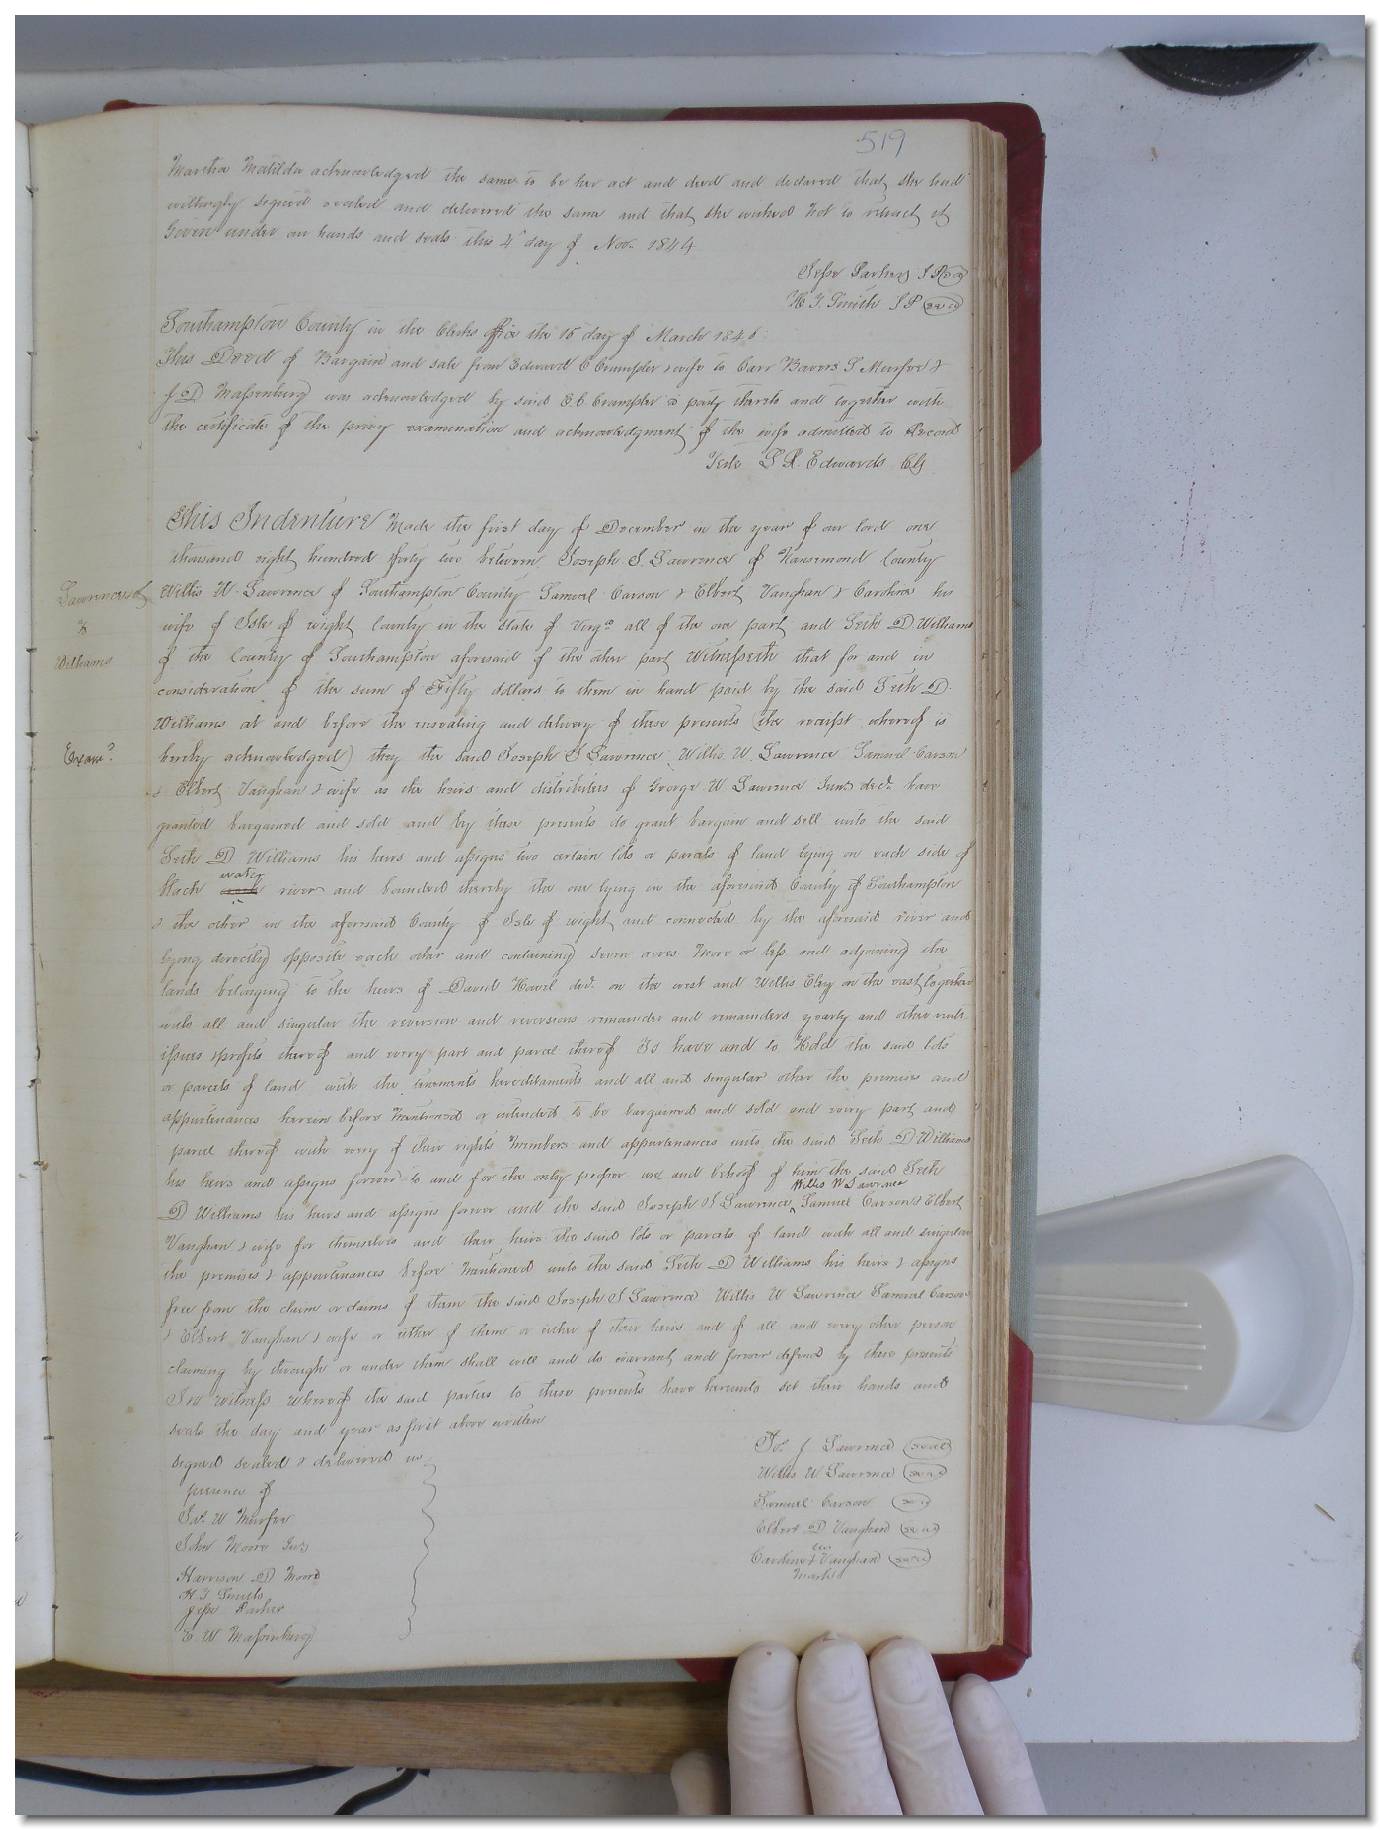 519
Martha Matilda acknowledged the same to be her act and deed and declared that she had
willingly signed sealed and delivered the same and that she wished not to retract it
Given under our hands and seals this 4th day of Nov. 1844
Jesse Parker J P seal
H. T. Smith J P seal
Southampton County in the Clerks Office the 16 day of March 1846
This Deed of Bargain and sale from Edward C Crumpler & wife to Carr Bowers S Murfee &
J D Massenburg was acknowledged by said E. C Crumpler a party thereto and together with
the certificate of the privy examination and acknowledgment of the wife admitted to Record
Teste L R. Edwards Clk
This Indenture Made the first day of December in the year of our lord one
thousand eight hundred & forty two between Joseph J. Lawrence of Nansemond County
Lawrence &c Willis W. Lawrence of Southampton County Samuel Carson & Elbert Vaughan & Caroline his
wife of Isle of wight County in the State of Virga all of the one part and Seth D. Williams
Williams of the County of Southampton aforesaid of the other part Witnesseth that for and in
consideration of the sum of Fifty dollars to them in hand paid by the said Seth D.
Williams at and before the ensealing and delivery of these presents (the receipt whereof is
Examd hereby acknowledged) they the said Joseph J Lawrence Willis W. Lawrence Samuel Carson
& Elbert Vaughan & wife as the heirs and distributees of George W Lawrence Junr. decd. have
granted bargained and sold and by these presents do grant bargain and sell unto the said
Seth D Williams his heirs and assigns two certain lots or parcels of land lying on each side of
black water river and bounded thereby the one lying in the aforesaid County of Southampton
& the other in the aforesaid County of Isle of wight and connected by the aforesaid river and
lying directly opposite each other and containing seven acres more or less and adjoining the
lands belonging to the heirs of David Howel decd. on the west and Willis Eley on the east together
with all and singular the reversion and reversions remainder and remainders yearly and other rents
issues & profits thereof and every part and parcel thereof To have and to Hold the said lots
or parcels of land with the tenements hereditaments and all and singular other the premises and
appurtenances herein before mentioned or intended to be bargained and sold and every part and
parcel thereof with every of their rights members and appurtenances unto the said Seth D Williams
his heirs and assigns forever to and for the only proper use and behoof of him the said Seth
Willis W Lawrence
D Williams his heirs and assigns forever and the said Joseph J Lawrence ^ Samuel Carson & Elbert
Vaughan & wife for themselves and their heirs the said lots or parcels of land with all and singular
the premises & appurtenances before mentioned unto the said Seth D Williams his heirs & assigns
free from the claim or claims of them the said Joseph J Lawrence Willis W Lawrence Samuel Carson
& Elbert Vaughan & wife or either of them or either of their heirs and of all and every other person
claiming by through or under them shall will and do warrant and forever defend by these presents
In witness whereof the said parties to these presents have hereunto set their hands and
seals the day and year as first above written
signed sealed & delivered in
presence of
Jos. J Lawrence seal
Willis W Lawrence seal
Samuel Carson seal
Elbert D Vaughan seal
her
Caroline + Vaughan seal
mark
W Murfee
John Moore
Harrison D Moore
H T Smith
Jesse Parker
E W Massenburg